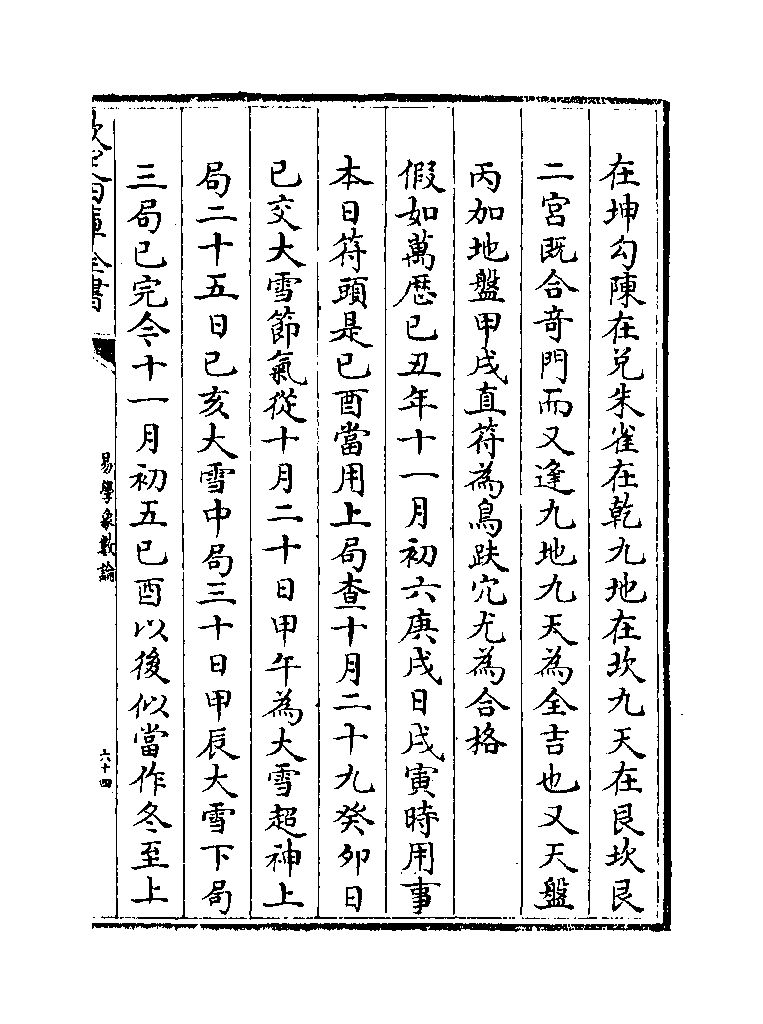 在坤勾陳在兑朱雀在乾九地在坎九天在艮坎艮
二宮既合竒門而又逢九地九天為全吉也又天盤
丙加地盤甲戌直符為鳥趺穴尤為合格
假如萬厯已丑年十一月初六庚戌日戊寅時用事
本日符頭是已酉當用上局查十月二十九癸卯日
已交大雪節氣從十月二十日甲午為大雪超神上
局二十五日已亥大雪中局三十日甲辰大雪下局
三局已完今十一月初五已酉以後似當作冬至上
欽定四庫全書
易學象數論
六十四